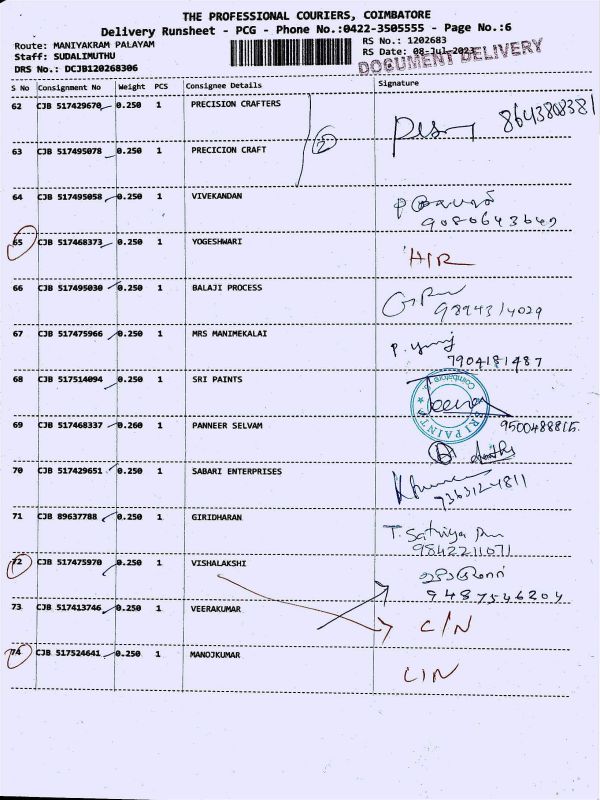 THE PROFESSIONAL COURIERS, COIMBATORE
Delivery Runsheet - PCG - Phone No.:0422-3505555 - Page No.:6
Route: MANIYAKRAM PALAYAM
Staff: SUDALIMUTHU
DRS No.: DCJB120268306
RS No.: 1202683
RS Date: 08-Jul-2023
DOCUMENT DELIVERY
S No Consignment No Weight PCS Consignee Details Signature
62 CJB 517429670 0.250 1 PRECISION CRAFTERS 8643808381
2
63 CJB 517495078 0.250 1 PRECICION CRAFT
64 CJB 517495058 0.250 1 VIVEKANDAN
9080643649
65 CJB 517468373 0.250 1 YOGESHWARI H/R
66 CJB 517495030 0.250 1 BALAJI PROCESS
9894314029
67 CJB 517475966 0.250 1 MRS MANIMEKALAI
7904181487
68 CJB 517514094 0.250 1 SRI PAINTS
SRI PAINTS
69 CJB 517468337 0.260 1 PANNEER SELVAM 9500488815
70 CJB 517429651 0.250 1 SABARI ENTERPRISES
7363124811
71 CJB 89637788 0.250 1 GIRIDHARAN T. Sathiya
9842211071
72 CJB 517475970 0.250 1 VISHALAKSHI
9487546204
73 CJB 517413746 0.250 1 VEERAKUMAR C/N
74 CJB 517524641 0.250 1 MANOJKUMAR C/N